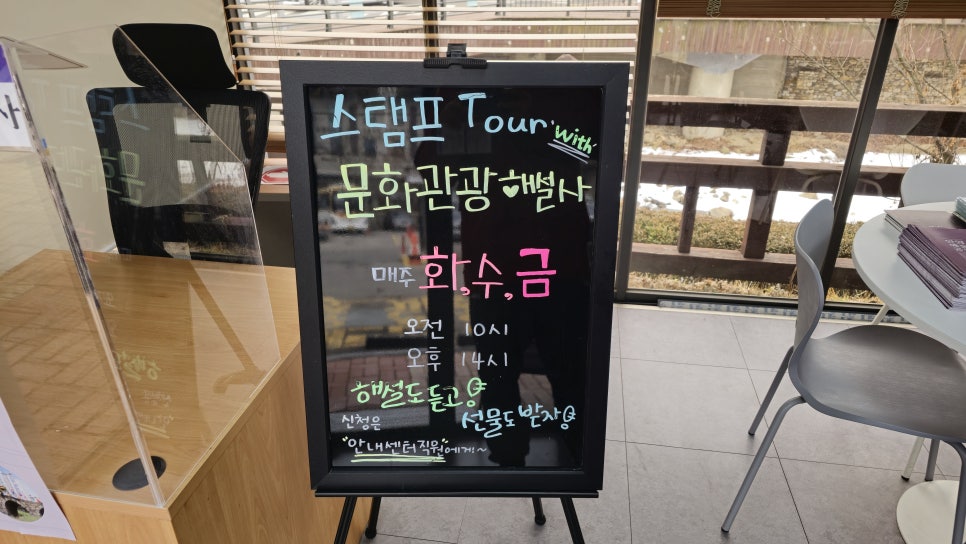 스탬프 Tour with
문화관광♥해설사
매주 화,수,금
오전 10시
오후 14시
해설도 듣고
선물도 받자
신청은
"안내센터직원"에게!~
사